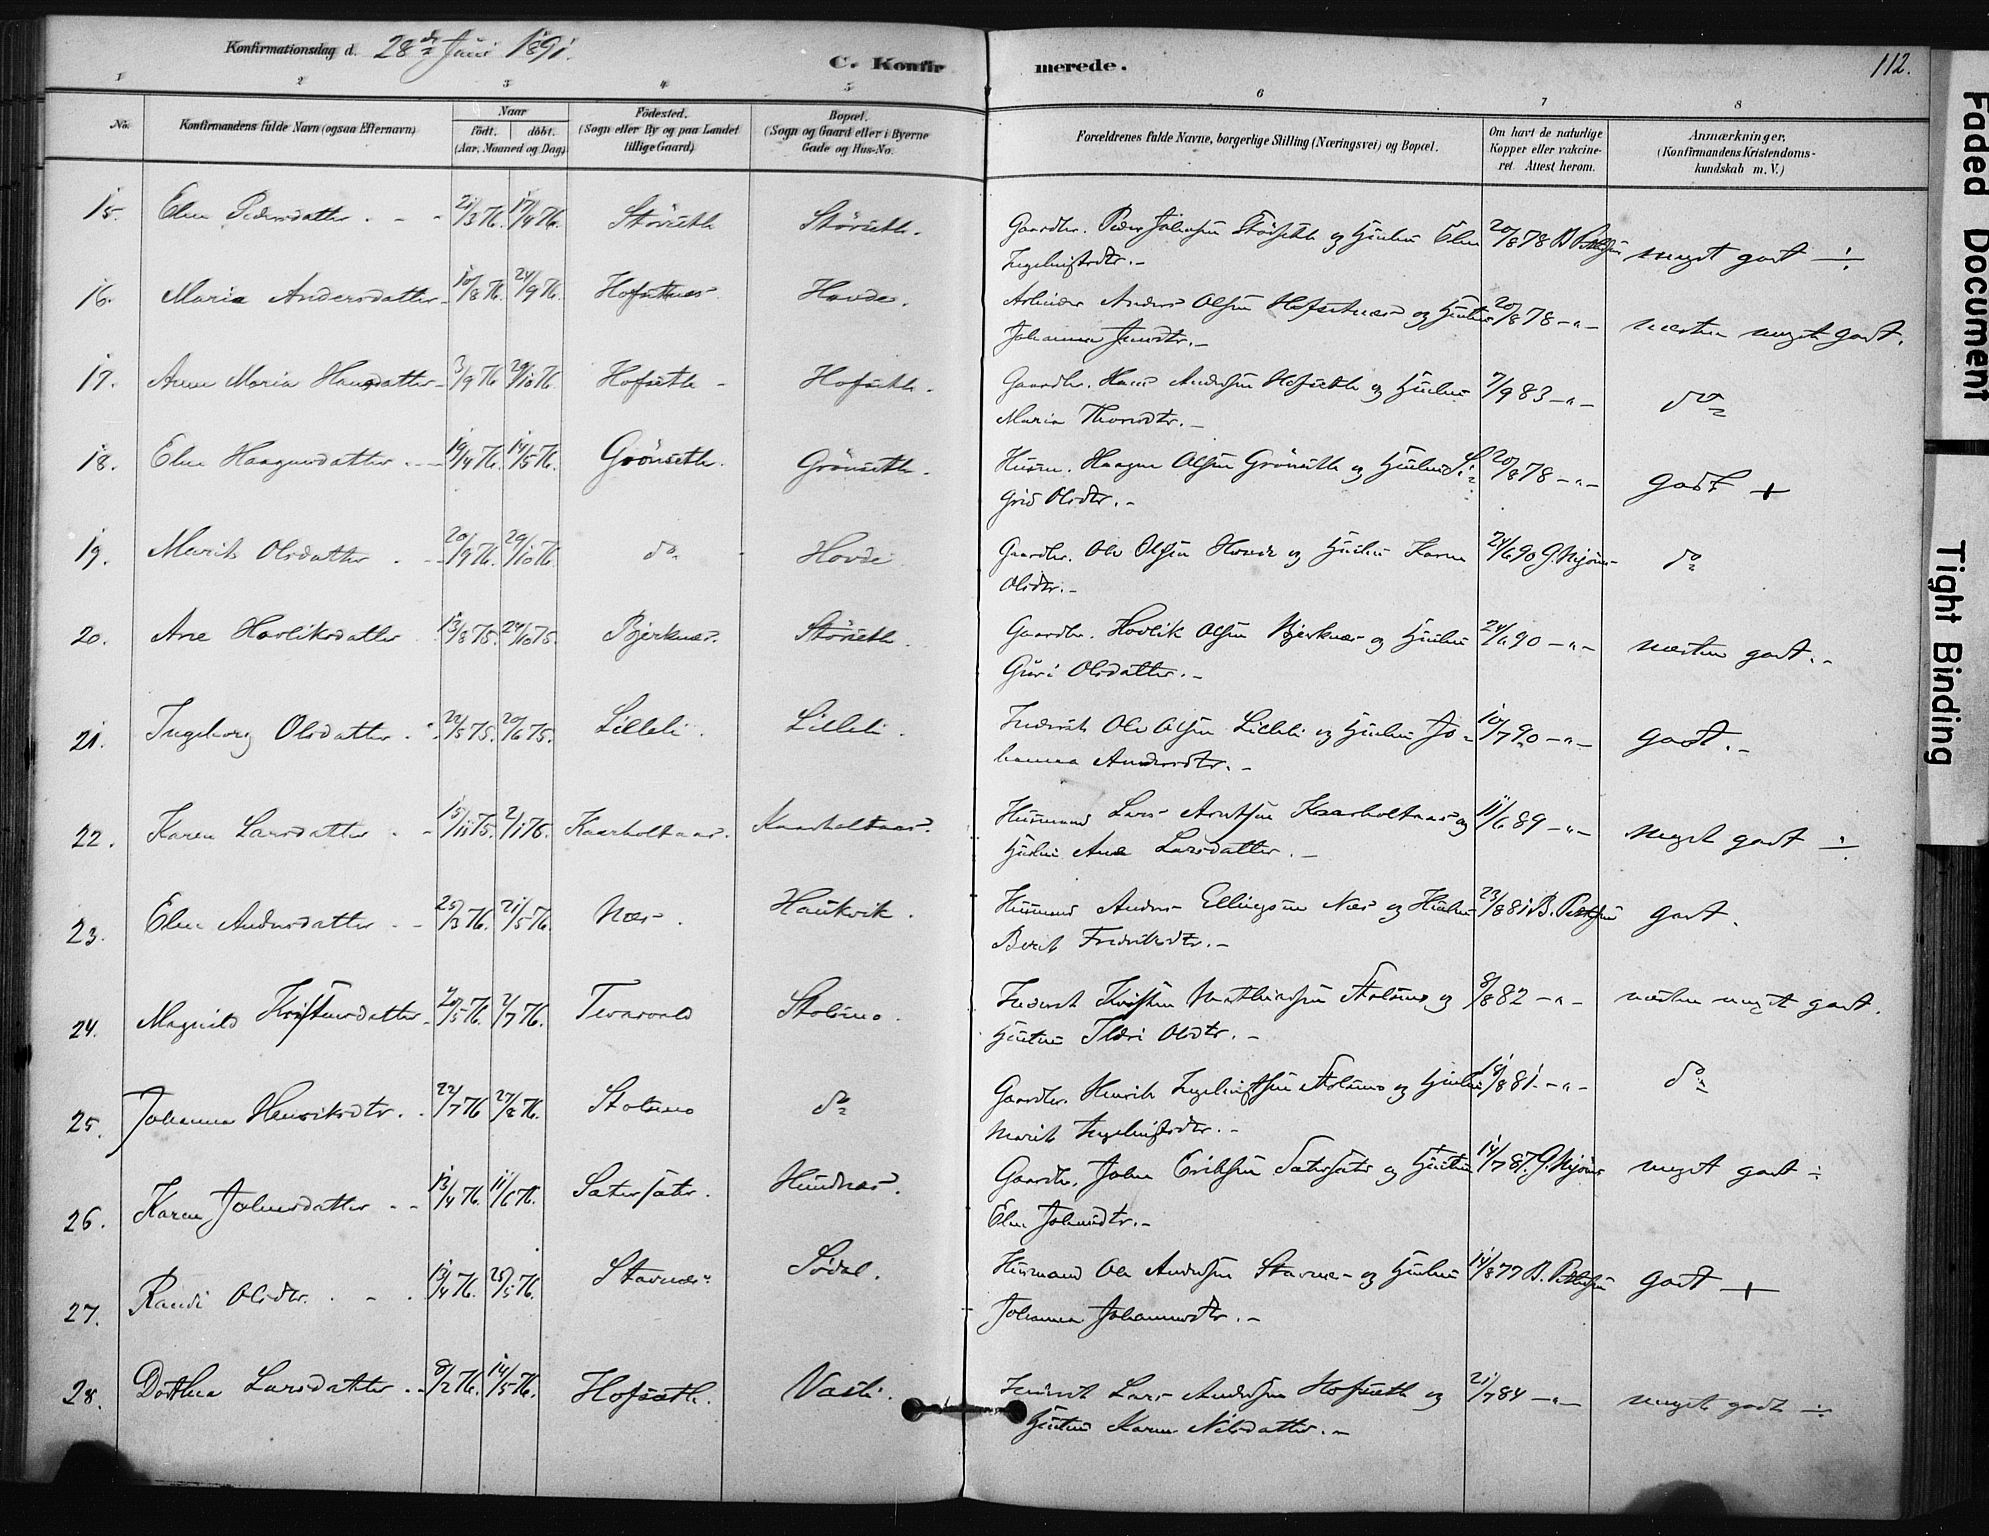 Konfirmationsdag d. 28de Juni 1891.
C. Konfirmerede.
112.
1 2 3 4 5 6 7 8
No.
Konfirmandens fulde Navn (ogsaa Efternavn)
Naar
födt. döbt.
(Aar, Maaned og Dag)
Födested.
(Sogn eller By og paa Landet
tillige Gaard)
Bopæl.
(Sogn og Gaard eller i Byerne
Gade og Hus-No.
Forældrenes fulde Navne, borgerlige Stilling (Næringsvei) og Bopæl.
Om havt de naturlige
Kopper eller vakcine-
ret. Attest herom.
Anmærkninger,
(Konfirmandens Kristendoms-
kundskab m. V.)
15. Elen Pedersdatter. 21/3 76. 17/4 76. Störseth Störseth. Gaardbr. Peder Johnsen Störseth og Hustru Elen 20/8 78 meget godt ÷
16. Maria Andersdatter 10/8 76. 24/9 76. Hofsethnes Hovde. Arbeider Anders Olsen Hofsetnes og Hustru 20/8 78 -"- næsten meget godt.
Johanna Jensdtr.-
17. Anne Maria Hansdatter 3/9 76 29/10 76. Hofseth - Hofseth. Gaardbr. Hans Andersen Hofseth og Hustru 7/9 83 -"- do
Maria Thorsdtr.-
18. Elen Haagensdatter 19/4 76. 14/5 76. Grönseth. Grönseth. Husm. Haagen Olsen Grönseth og Hustru Si- 20/8 78 -"- godt +
grid Olsdtr.-
19. Marit Olsdatter 20/9 76. 29/10 76. do Hovde Gaardbr. Ole Olsen Hovde og Hustru Karen 24/6 90 do
Olsdtr.-
20. Ane Hovliksdatter 13/8 75. 24/10 75. Bjerknes. Störseth. Gaardbr. Hovlik Olsen Bjerknes og Hustru 24/6 90 -"- næsten godt.-
Guri Olsdatter.-
21. Ingeborg Olsdatter 22/5 75. 20/6 75. Lilleli. Lilleli. Inderst Ole Olsen Lilleli og Hustru Jo- 10/7 90 -"- godt.-
hanna Andersdtr.-
22. Karen Larsdatter 15/11 75. 2/1 76. Kaarholtaas. Kaarholtaas. Husmand Lars Arntsen Kaarholtaas og 11/6 89 -"- meget godt ÷
Hustru Ane Larsdatter.-
23. Elen Andersdatter 25/3 76. 21/5 76. Nes. Haukvik. Husmand Anders Ellingsen Nes og Hustru 23/8 81 B. godt.
Berit Fredriksdtr.-
24. Magnild Kristensdatter 20/5 76. 2/7 76. Tevasvold Stolsmo. Inderst Kristen Mathiassen Stolsmo og 8/8 82 -"- næsten meget godt.
Hustru Olsdtr.-
25. Johanna Henriksdtr. 22/7 76 27/8 76. Stolsmo do Gaardbr. Henrik Ingebrigtsen Stolsmo og Hustru 18/8 81 -"- do
Marit Ingebrigtsdtr.-
26. Karen Johnsdatter 13/4 76. 11/6 76. Satersæter. Hundnes. Gaardbr. John Eriksen Satersæter og Hustru 14/7 87. meget godt ÷
Elen Johnsdtr.-
27. Randi Olsdtr. 13/4 76. 25/5 76. Stavnes Södal. Husmand Ole Andersen Stavnes og Hustru 14/8 77 B. godt +
Johanna Johannesdtr.-
28. Dorthea Larsdatter 8/2 76. 14/5 76. Hofsæth. Vasli. Inderst Lars Andersen Hofseth og 21/7 84 -"- meget godt ÷
Hustru Karen Nilsdatter.-
Faded Document
Tight Binding